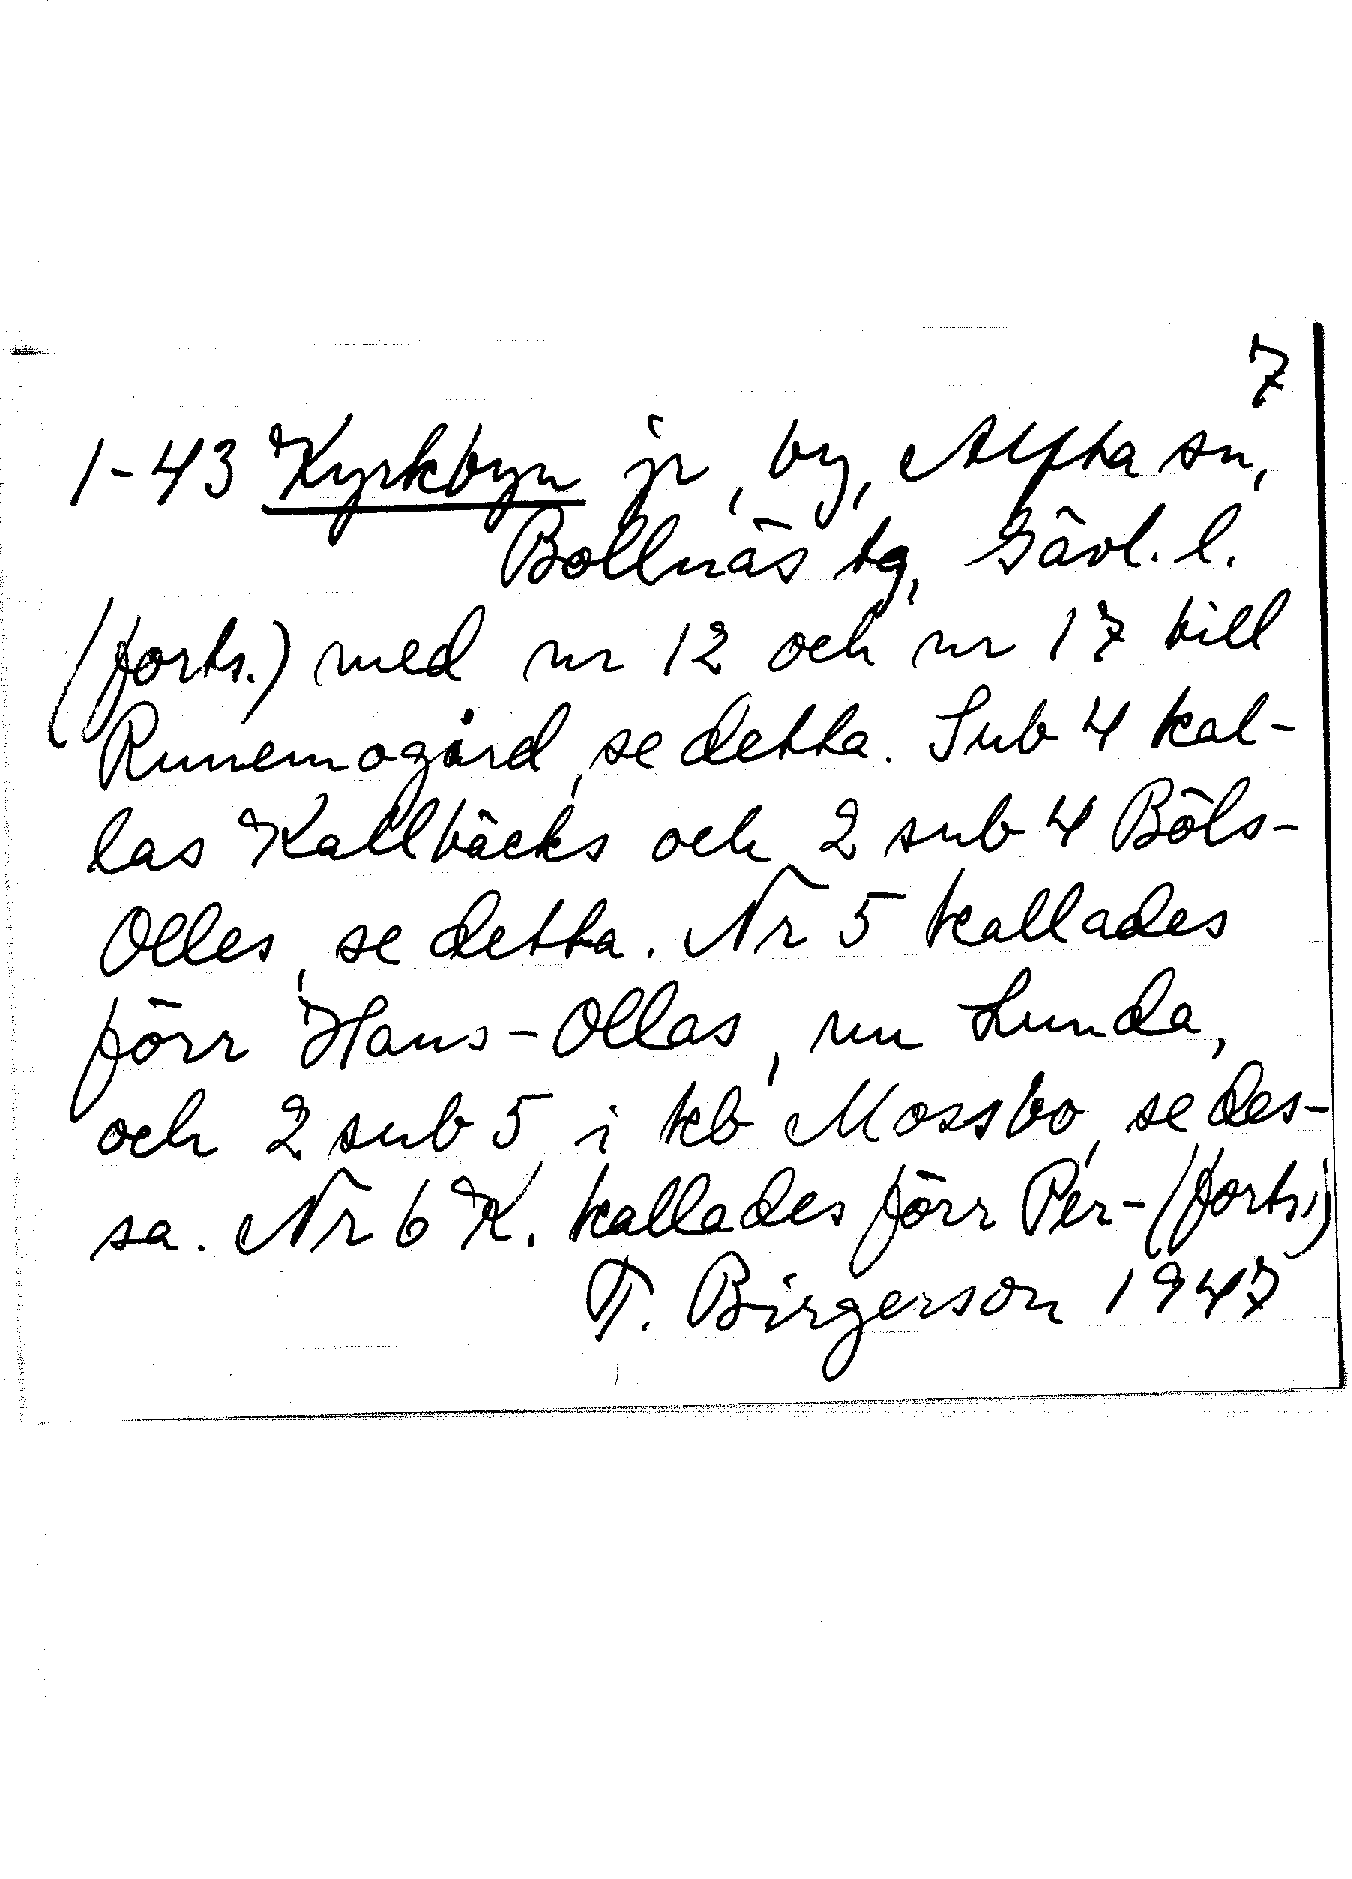 7
1-43 Kyrkbyn jr, by, Alfta sn,
Bollnäs tg, Gävl. l.
(forts.) med nr 12 och nr 17 till
Runemogård, se detta. Sub 4 kal-
las Kallbäcks och 2 sub 4 Böls-
Olles, se detta. Nr 5 kallades
förr Hans-Ollas, nu Lunda,
och 2 sub 5, i kb Mossbo, se des-
sa. Nr 6 K. kallades förr Per-(forts.)
T. Birgerson 1947